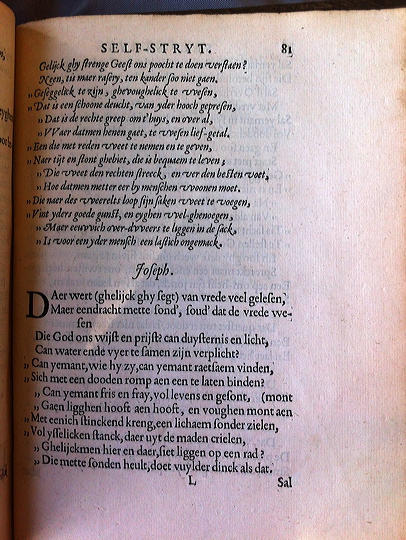 SELF-STRYT. 81
Gelijck ghy strenge Geest ons poocht te doen verstaen?
Neen, tis maer rasery, ten kander soo niet gaen.
„Geseggelick te zijn, ghevoughelick te wesen,
„Dat is een schoone deucht, van yder hooch gepresen,
„Dat is de rechte greep om t'huys, en over al,
„VVaer datmen henen gaet, te wesen lief-getal.
„Een die met reden weet te nemen en te geven,
„Naer tijt en stont ghebiet, die is bequaem te leven;
„Die weet den rechten streeck, en ver den besten voet,
„Hoe datmen metter eer by menschen woonen moet.
„Die naer des weerelts loop sijn saken weet te voegen,
„Vint yders goede gunst, en eyghen wel-ghenoegen,
„Maer eeuwich over-dweers te liggen in de sack,
„Is voor een yder mensch een lastich ongemack.
Joseph.
DAer wert (ghelijck ghy segt) van vrede veel gelesen,
Maer eendracht mette sond', soud' dat de vrede we-
sen
Die God ons wijst en prijst? can duysternis en licht,
Can water ende vyer te samen zijn verplicht?
„Can yemant, wie hy zy, can yemant raetsaem vinden,
„Sich met een dooden romp aen een te laten binden?
„Can yemant fris en fray, vol levens en gesont, (mont
„Gaen liggen hooft aen hooft, en voughen mont aen
„Met eenich stinckend kreng, een lichaem sonder zielen,
„Vol ysselicken stanck, daer uyt de maden crielen,
„Ghelijckmen hier en daer, siet liggen op een rad?
„Die mette sonden heult, doet vuylder dinck als dat.
L Sal